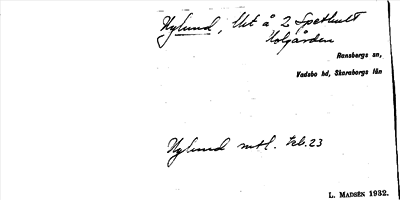 Nylund, Ut å 2 Spethult
Holgården
Ransbergs sn,
Vadsbo hd, Skaraborgs län
Nylund mtl. Kb. 23
L. MADSÉN 1932.